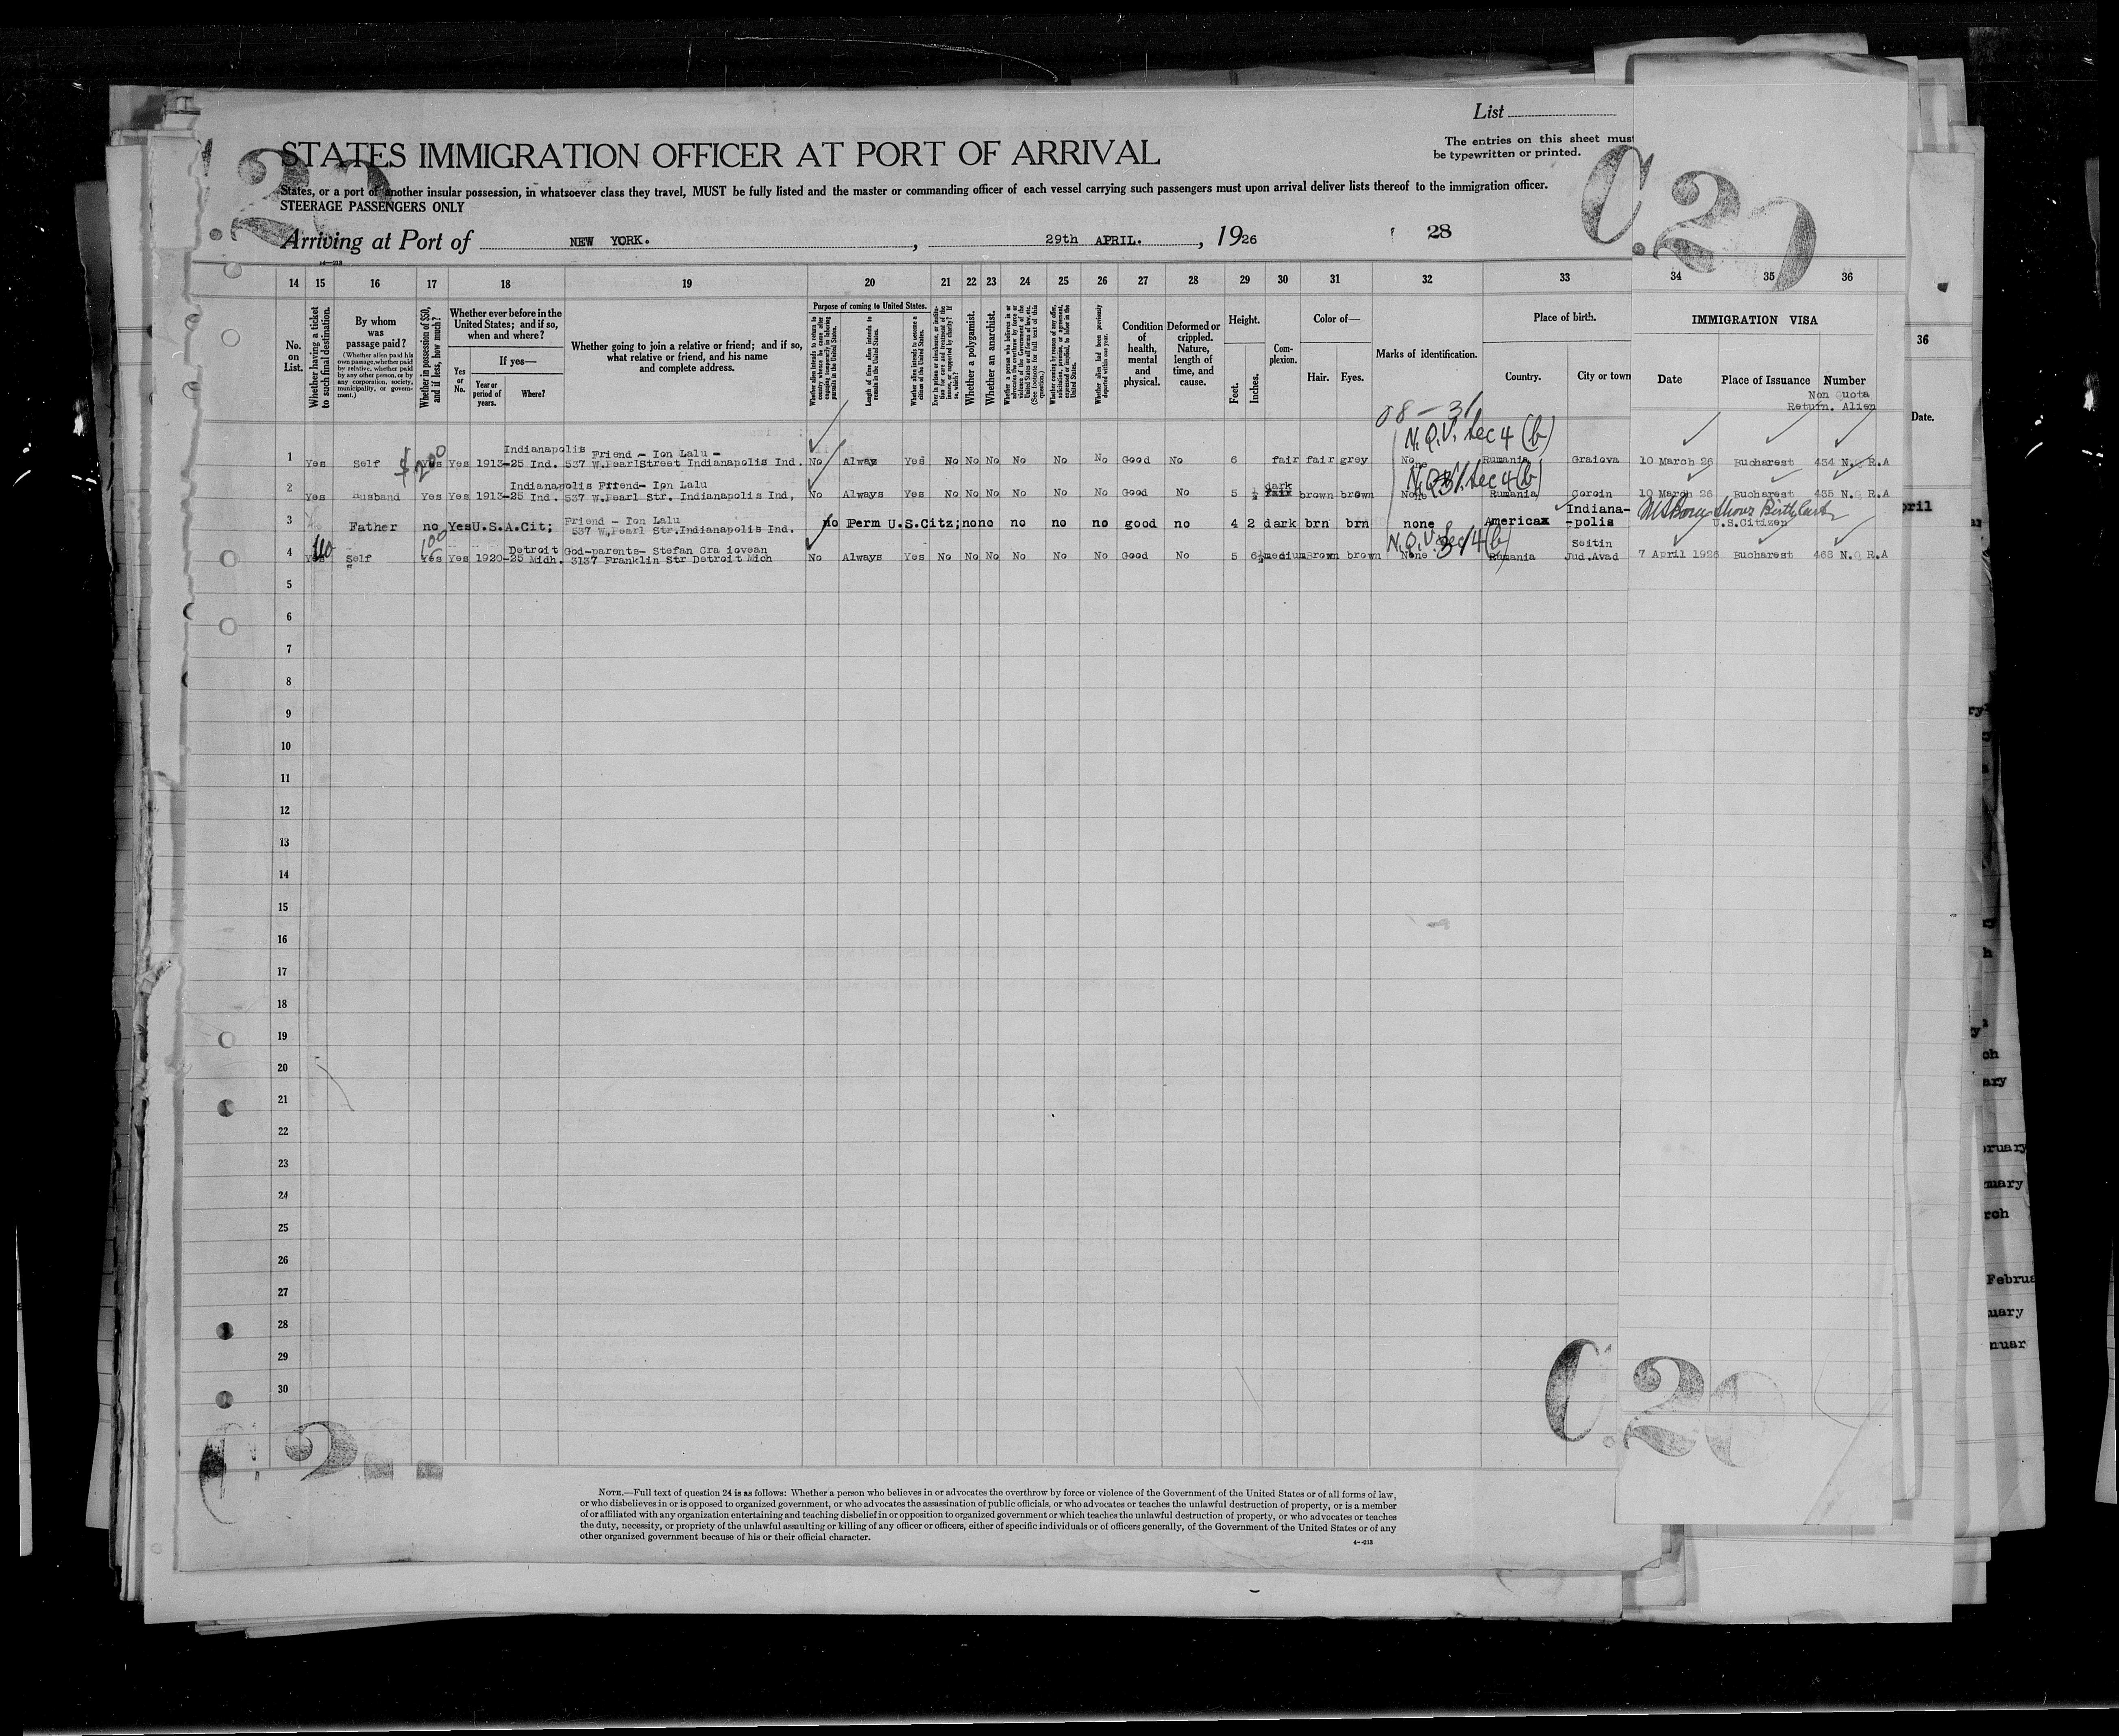 List
The entries on this sheet must
be typewritten or printed.
STATES IMMIGRATION OFFICER AT PORT OF ARRIVAL
States, or a port of another insular possession, in whatsoever class they travel, MUST be fully listed and the master or commanding officer of each vessel carrying such passengers must upon arrival deliver lists thereof to the immigration officer.
STEERAGE PASSENGERS ONLY
Arriving at Port of NEW YORK. , 29th APRIL. , 1926 28
14 15 16 17 18 19 20 21 22 23 24 25 26 27 28 29 30 31 32 33 34 35 36
No. on List.
Whether having a ticket to such final destination.
By whom was passage paid?
(Whether alien paid his own passage, whether paid by relative, whether paid by any other person, or by any corporation, society, municipality, or government.)
Whether in possession of $50, and if less, how much?
Whether ever before in the United States; and if so, when and where?
Yes or No.
If yes—
Year or period of years.
Where?
Whether going to join a relative or friend; and if so, what relative or friend, and his name and complete address.
Purpose of coming to United States.
Length of time alien intends to remain in the United States.
Whether alien intends to become a citizen of the United States.
Whether a polygamist.
Whether an anarchist.
Condition of health, mental and physical.
Deformed or crippled. Nature, length of time, and cause.
Height.
Feet. Inches.
Complexion.
Color of—
Hair. Eyes.
Marks of identification.
Place of birth.
Country. City or town
IMMIGRATION VISA
Date Place of Issuance Number
Non Quota
Return. Alien
36
Date.
N.Q.V. Sec 4 (b)
Indianapolis Friend - Ion Lalu -
1 Yes Self $200 Yes Yes 1913-25 Ind. 537 W.PearlStreet Indianapolis Ind. No Alway Yes No No No No No No Good No 6 fair fair grey None Rumania Graiova 10 March 26 Bucharest 434 N.Q R.A
N.Q.V. Sec 4 (b)
Indianapolis Friend- Ion Lalu dark
2 Yes Husband Yes Yes 1913-25 Ind. 537 W.Pearl Str. Indianapolis Ind, No Always Yes No No No No No No Good No 5 ½ fair brown brown None Rumania Coroin 10 March 26 Bucharest 435 N.Q R.A
3 Father no Yes U.S.A.Cit; Friend - Ion Lalu
537 W.Pearl Str.Indianapolis Ind. no Perm U.S.Citz; no no no no no good no 4 2 dark brn brn none Americax Indiana-
-polis U.S.Citizen
100 N.Q.V. Sec 4 (b)
Detroit God-parents- Stefan Cra iovean Seitin
4 Yes Self Yes Yes 1920-25 Midh. 3137 Franklin Str Detroit Mich No Always Yes No No No No No No Good No 5 6½ medium Brown brown None Rumania Jud.Avad 7 April 1926 Bucharest 468 N.Q R.A
5
6
7
8
9
10
11
12
13
14
15
16
17
18
19
20
21
22
23
24
25
26
27
28
29
30
NOTE.—Full text of question 24 is as follows: Whether a person who believes in or advocates the overthrow by force or violence of the Government of the United States or of all forms of law,
or who disbelieves in or is opposed to organized government, or who advocates the assassination of public officials, or who advocates or teaches the unlawful destruction of property, or is a member
of or affiliated with any organization entertaining and teaching disbelief in or opposition to organized government or which teaches the unlawful destruction of property, or who advocates or teaches
the duty, necessity, or propriety of the unlawful assaulting or killing of any officer or officers, either of specific individuals or of officers generally, of the Government of the United States or of any
other organized government because of his or their official character.